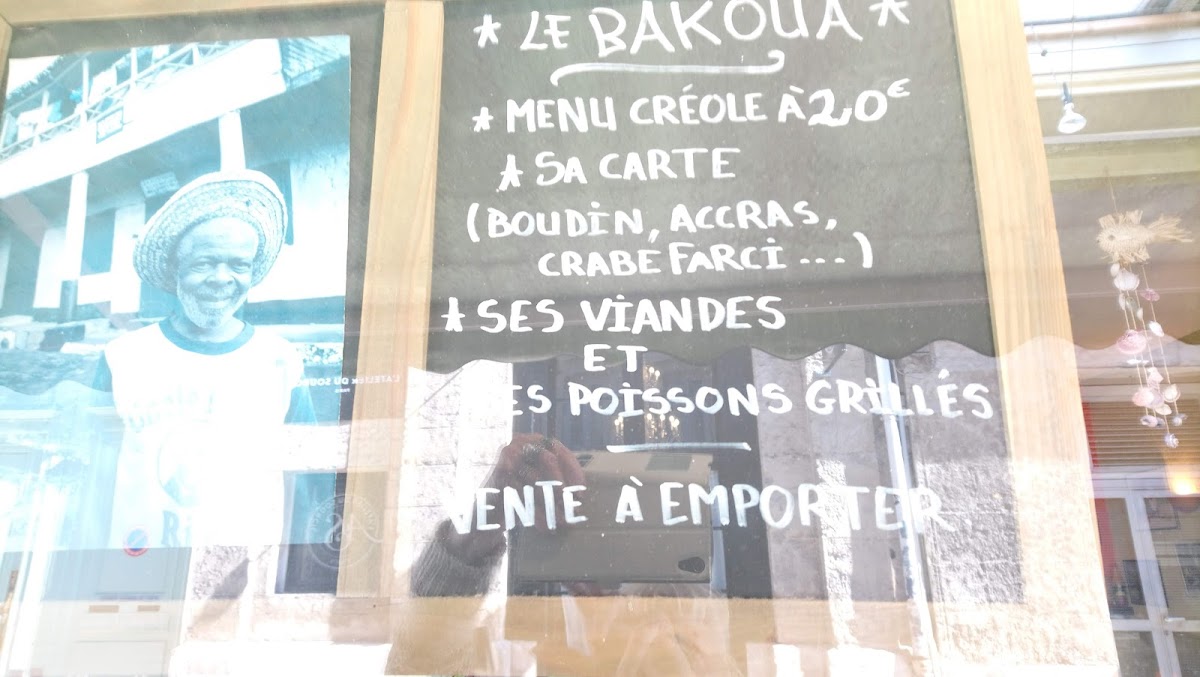 * LE BAKOUA *
* MENU CRÉOLE À 20€
* SA CARTE
(BOUDIN, ACCRAS,
CRABE FARCI ... )
* SES VIANDES
ET
POISSONS GRILLÉS
VENTE À EMPORTER